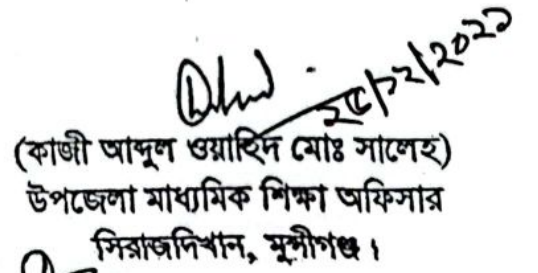 (কাজী আব্দুল ওয়াহিদ মোঃ সালেহ)
উপজেলা মাধ্যমিক শিক্ষা অফিসার
সিরাজদিখান, মুন্সীগঞ্জ।